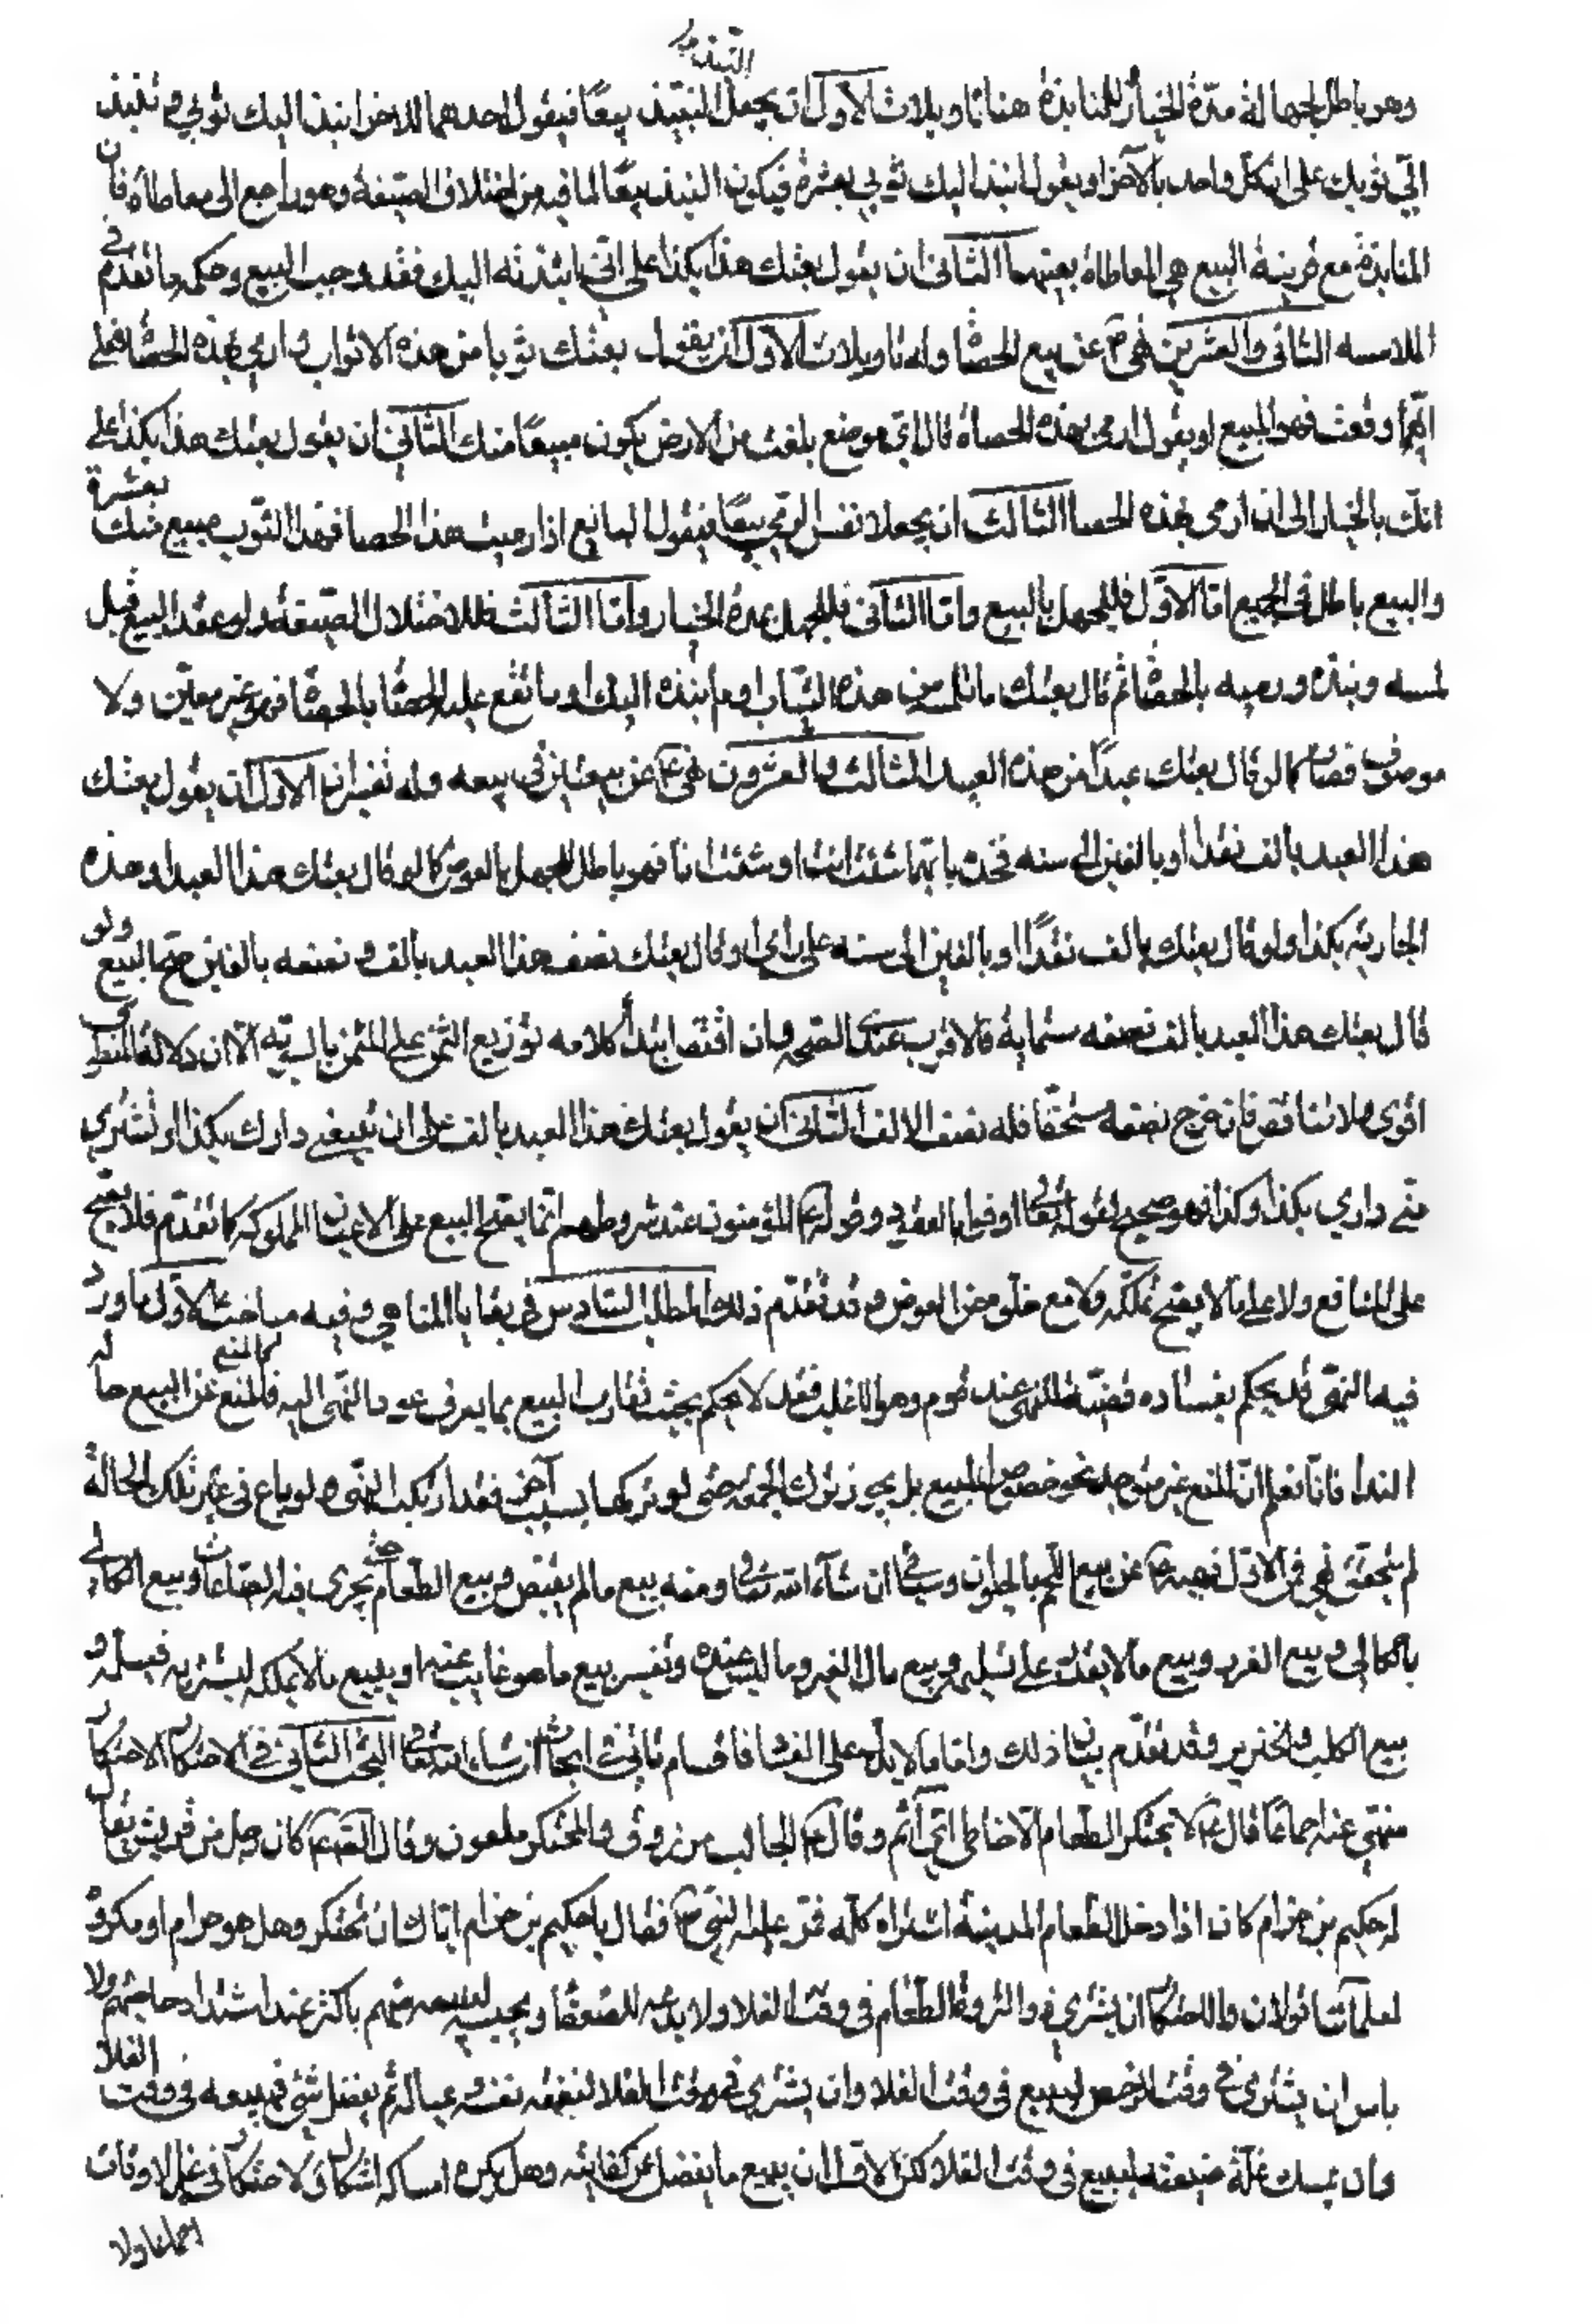 التنبيذ
وهو باطل لجهالة مدّة الخيار للمنابذة هنا تاويلات الأول ان يجعل النبيذ بيعًا فيقول احدهما للاخر انبذ اليك ثوبي وتنبذ
الىّ ثوبك على ان كل واحد بالآخر او يقول انبذ اليك ثوبي بعشرة فيكون النبذ بيعًا لما فيه من اختلاف الصيغة وهو راجع الى معاطاة فان
المنابذة مع قرينة البيع هي المعاطاة بعينها الثاني ان يقول بعتك هذا بكذا على انى اذا نبذته اليك فقد وجب البيع وحكمه ما تقدم في
الملامسه الثاني والعشرين نهى عن بيع الحصا وله تاويلات الأول ان يقول بعتك ثوبا من هذه الاثواب وارمي بهذه الحصا فعلى
ايّها وقعت فهو المبيع او يقول ارمى بهذه الحصاة فالى اىّ موضع بلغت من الارض يكون مبيعًا منك الثاني ان يقول بعتك هذا بكذا على
انّك بالخيار الى ان ارمى بهذه الحصا الثالث ان يجعلا نفس الرمي بيعًا فيقول البايع اذا رميت هذا الحصا فهذا الثوب مبيع منك بعشرة
والبيع باطل في الجميع امّا الأوّل فللجهل بالمبيع وامّا الثاني فللجهل بمدة الخيار وامّا الثالث فللاختلال الصيغة ولو عقد البيع قبل
لمسه ونبذه ورميه بالحصا ثم قال بعتك ما تلمس من هذه الثياب او ما انبذه اليك او ما تقع عليه الحصا بالحصا فهو غير معيّن ولا
موصوف فصار كما لو قال بعتك عبدًا من هذه العبيد الثالث والعشرون نهى عن بيعتين في بيعه وله تفسيران الأول ان يقول بعتك
هذا العبد بالف نقدا او بالفين الى سنه فخذ بايّهما شئت انت او شئت انا فهو باطل للجهل بالعوض كما لو قال بعتك هذا العبد او هذه
الجارية بكذا ولو قال بعتك بالف نقدًا او بالفين الى سنه على راى او قال بعتك نصف هذا العبد بالف ونصفه بالفين صحّ البيع ولو
قال بعتك هذا العبد بالف نصفه ستمايه فالاقرب عندي الصحه وان اقتضا ابتدأ كلامه توزيع الثمن على المثمن بالسويّه الّا ان دلالة المنطوق
اقوى فلا تناقض فان خرج نصفه مستحقًا فله نصف الالف الثاني ان يقول بعتك هذا العبد بالف على ان تبيعني دارك بكذا او تشتري
منّى داري بكذا وكذا فهو صحيح لقوله تعالى اوفوا بالعقود وقوله المؤمنون عند شروطهم انّما يصح البيع على الاعيان المملوكه كما تقدّم فلا يصح
على المنافع ولا على ما لا يصح تملّكه ولا مع خلوه من العوض وقد تقدّم ذلك المطلب السّادس في بقايا المناهي وفيه مباحث الأول ما ورد
فيه النهى قد يحكم بفساده قضيّة للنهى عند قوم وهو الاغلب فقد لا يحكم بحيث تقارب البيع بما يعرف عود النهى اليه كالمنع فالمنع عن البيع حالة
الندا فانّا نعلم انّ المنع غير متوجه نحو خصوص البيع بل يجوز ترك الجمعه حتى لو تركها بسبب آخر فقد ارتكب النهى ولو باع في غير تلك الحالة
لم يتحقق نهى فمن الاول نهيه عن بيع اللحم بالحيوان وسياتي ان شآء الله تعالى ومنه بيع ما لم يقبض وبيع الطعام حتى يجرى فيه الصاعان وبيع الكالى
بالكالي وبيع الغرر وبيع ما لا يقدر على تسليمه وبيع مال الغير وما ليس عنده وتفسير بيع ما هو غايب عنه او يبيع ما لا يملكه ليشتريه فيسلّمه و
بيع الكلب والخنزير وقد تقدّم بيان ذلك وامّا ما لا يدل على الفساد فاقسام تاتى في ابحاث ان شاء الله تعالى البحث الثاني في الاحتكار الاحتكار
منهىّ عنه اجماعًا قال لا يحتكر الطعام الّا خاطى اى آثم وقال الجالب مرزوق والمحتكر ملعون وقال الصّ كان رجل من قريش يقال
له حكيم بن حزام كان اذا دخل الطعام المدينة اشتراه كلّه فمرّ عليه النبيّ فقال يا حكيم بن حزام اياك ان تحتكر وهل هو حرام او مكروه
لعلمآئنا قولان والاحتكار ان يشتري ذو الثروة الطعام في وقت الغلا ولا يدعه للضعفا ويحبسه ليبيعه منهم باكثر عند اشتداد حاجتهم ولا
باس ان يشتري في وقت الرخص ليبيع في وقت الغلا وان يشتري في وقت الغلا لنفقة نفسه وعياله ثم يفضل شئ فيبيعه في وقت الغلاء
وان يمسك غلّة ضيعته ليبيع في وقت الغلا ولكن الاولى ان يبيع ما يفضل عن كفايته وهل يكره امساكه اشكال ولا احتكار في غير الاوقات
اجماعا ولا